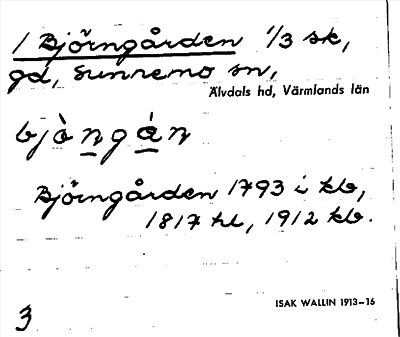 1 Björngården 1/3 sk,
gd, Sunnemo sn,
Älvdals hd, Värmlands län
bjò̀ngán
Björngården 1793 i kb,
1817 hl, 1912 kb.
ISAK WALLIN 1913–16
3